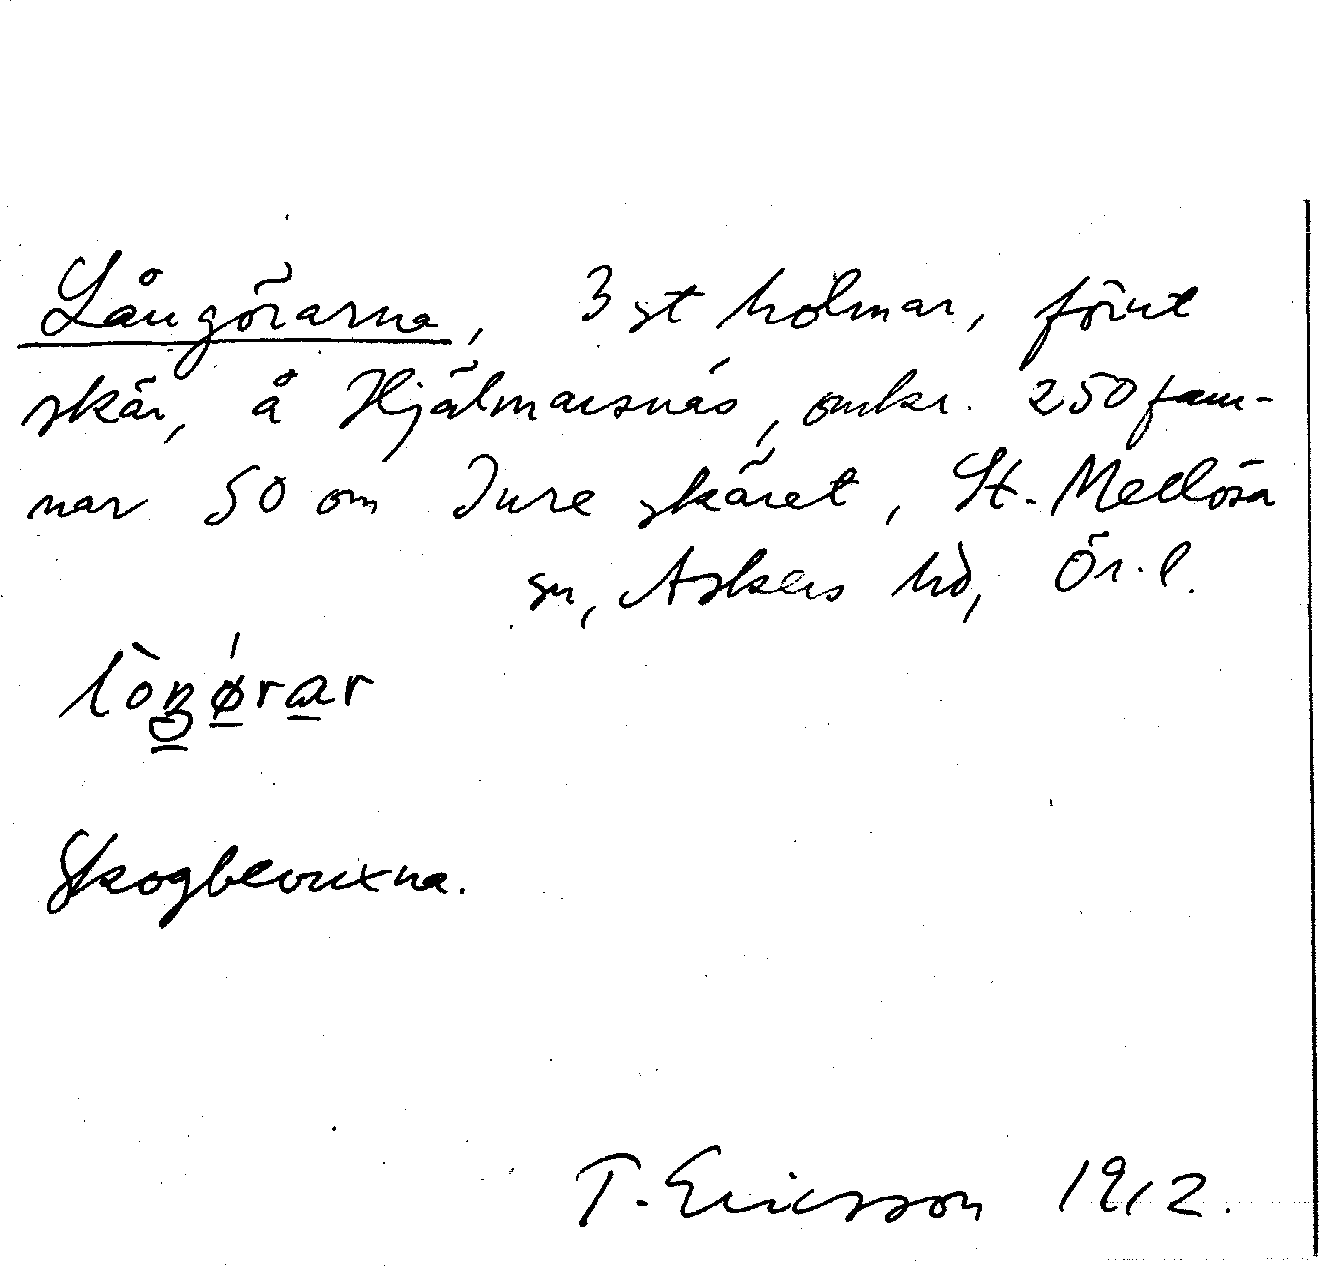 Långörarna, 3 st holmar, förut
skär, å Hjälmarsnäs, omkr. 250 fam-
nar SO om Ture skäret, St. Mellösa
sn, Askers hd, Ör. l.
Skogbevuxna.
T. Ericsson 1912.